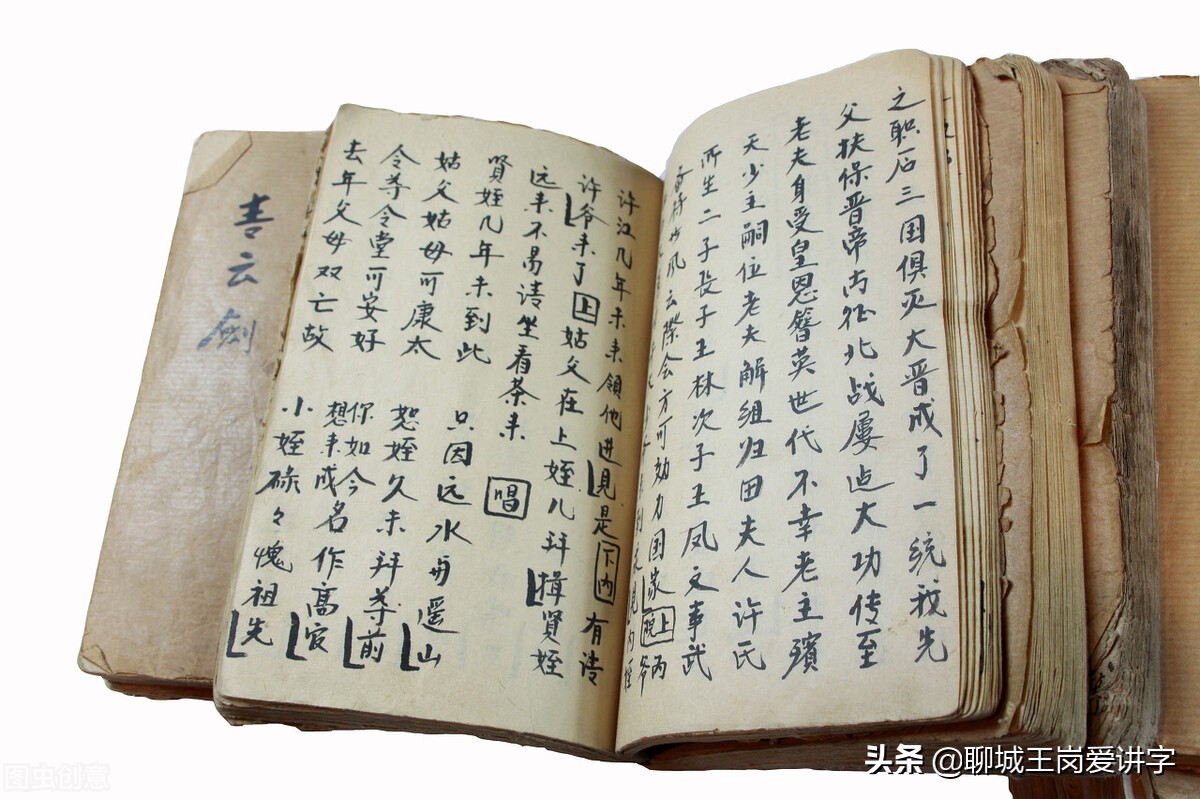 之职后三国俱灭大晋成了一统我先
父扶保晋帝南征北战屡迠大功传至
老夫身受皇恩簪英世代不幸老主殡
天少主嗣位老夫解组归田夫人许氏
所生二子长子王林次子王凤文事武
风云際会方可効力国家上
许江几年未来領他进見是下内有请
许爷来了上姑父在上姪儿拜揖贤姪
远来不易请坐看茶来唱
賢姪几年未到此 只因远水舟遥山
姑父姑母可康太 恕姪久未拜尊前
令尊令堂可安好 你如今想来成名作高官
去年父母双亡故 小姪碌々愧祖先
云劍
头条 @聊城王岗爱讲字
图虫创意